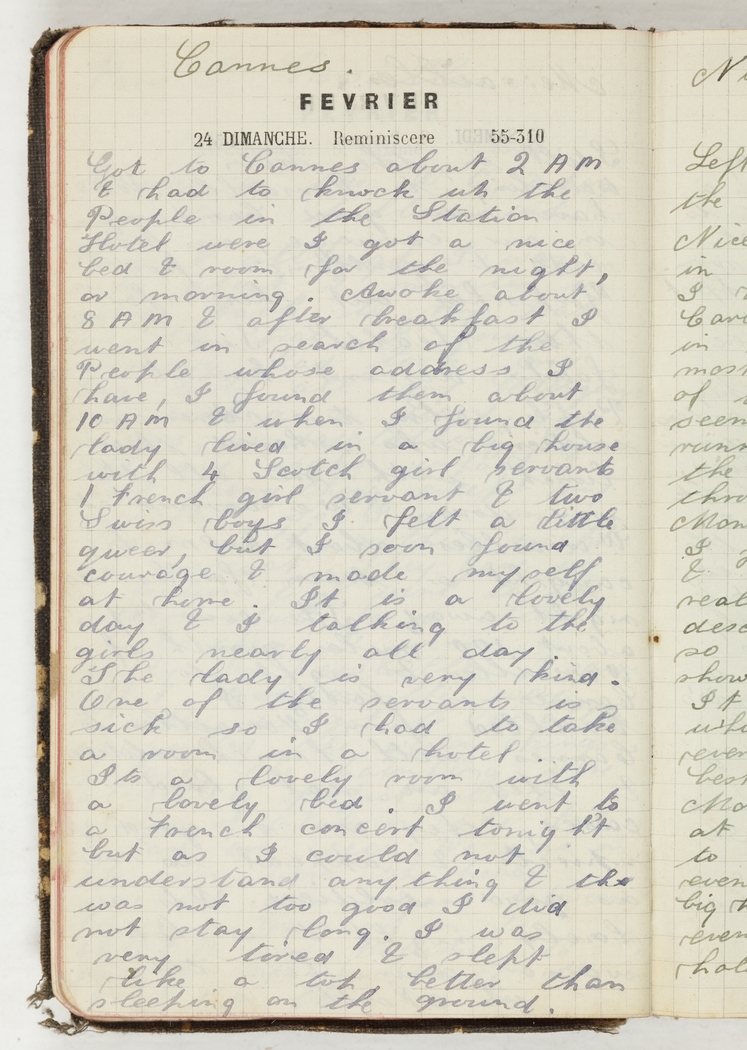 Cannes.
FEVRIER
24 DIMANCHE. Reminiscere 55-310
Got to Cannes about 2 AM
& had to knock up the
People in the Station
Hotel were I got a nice
bed & room for the night,
or morning. Awoke about
8 AM & after breakfast I
went in search of the
People whose address I
have, I found them about
10 AM & when I found the
lady lived in a big house
with 4 Scotch girl servants
1 French girl servant & two
Swiss boys I felt a little
queer, but I soon found
courage & made myself
at home. It is a lovely
day & I talking to the
girls nearly all day.
The lady is very kind.
One of the servants is
sick so I had to take
a room in a hotel.
Its a lovely room with
a lovely bed. I went to
a French concert tonight
but as I could not
understand anything & the
was not too good I did
not stay long. I was
very tired & slept
like a top, better than
sleeping on the ground.
Ni
Left
the
Nice
in
I
in
most
of
seen
runn
the
thro
Mon
I
&
real
desc
so
show
It
whi
ever
best
at
to
even
big
even